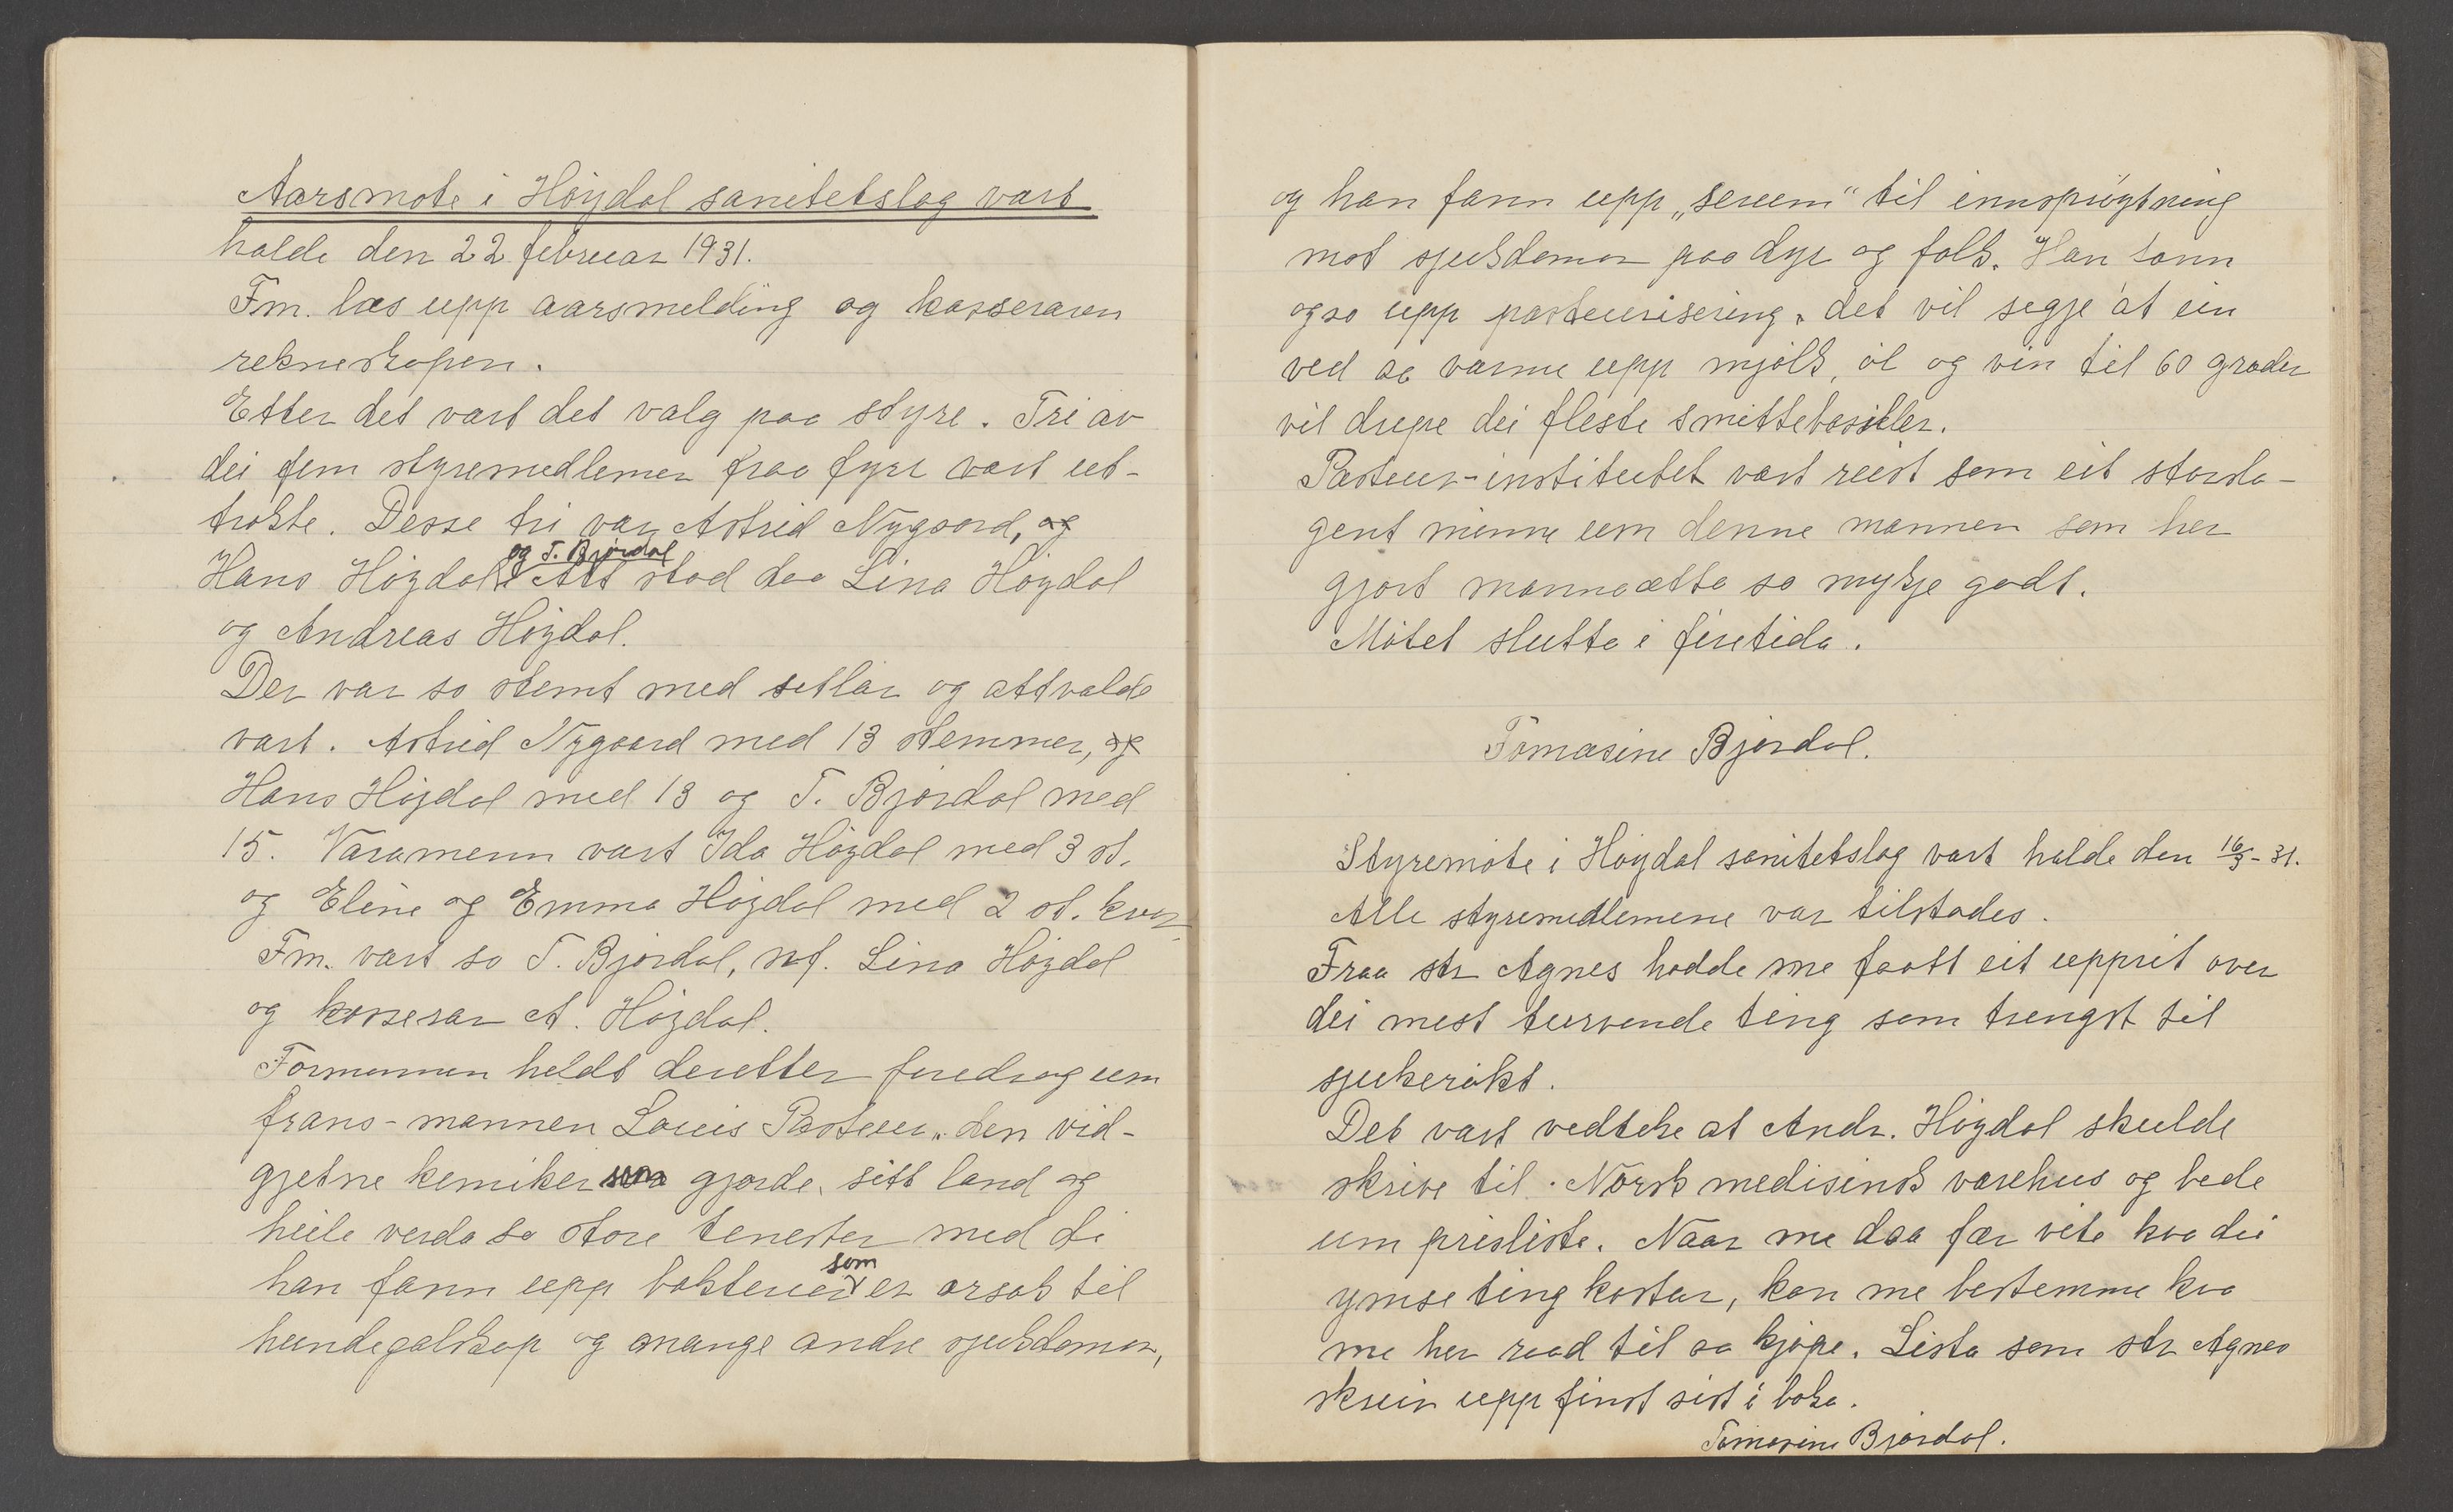 Aarsmøte i Høydal sanitetslag vart
halde den 22 februar 1931.
Fm. las upp aarsmelding og kasseraren
rekneskapen.
Etter det vart det valg paa styre. Tri av
dei fem styremedlemer fraa fyrr vart ut-
trekte. Desse tri var Astrid Nygaard, og
og T. Bjørdal
Hans Høydal. Att stod daa Lina Høydal
og Andreas Høydal.
Der var so stemt med setlar og attvalde
vart. Astrid Nygaard med 13 stemmer, og
Hans Høydal med 13 og T. Bjørdal med
15. Varamenn vart Ida Høydal med 3 st.
og Eline og Emma Høydal med 2 st. kvar
Fm. vart so T. Bjørdal, nf. Lina Høydal
og kasserar A. Høydal.
Formannen heldt deretter foredrag um
frans-mannen Louis Pasteur„ den vid-
gjetne kemiker som gjorde sitt land og
heile verda so store tenester med di
som
han fann upp bakterier er orsak til
hundegalskap og mange andre sjukdomar,
og han fann upp „serum" til innsprøytning
mot sjukdomar paa dyr og folk. Han fann
ogso upp pasteurisering, det vil segje at ein
ved aa varme upp mjølk, øl og vin til 60 grader
vil drepe dei fleste smittebasiller.
Pasteur-institutet vart reist som eit storsla-
gent minne um denne mannen som her
gjort mannaætta so mykje godt.
Møtet slutta i firetida.
Tomasine Bjørdal.
Styremøte i Høydal sanitetslag vart halde den 16/3-31.
Alle styremedlemene var tilstades.
Fraa str Agnes hadde me faatt eit upprit over
dei mest turvande ting som trengst til
sjukerøkt.
Det vart vedteke at Andr. Høydal skulde
skrive til Norsk medisinsk varehus og bede
um prisliste. Naar me daa fær vite kva dei
ymse ting kostar, kan me bestemme kva
me her raad til aa kjøpe. Lista som str Agnes
skreiv upp finst sist i boka.
Tomasine Bjørdal.